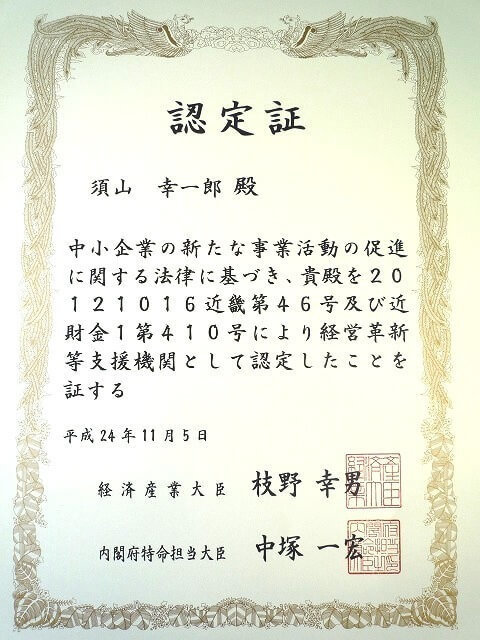 認定証
須山 幸一郎 殿
中小企業の新たな事業活動の促進
に関する法律に基づき、貴殿を20
121016近畿第46号及び近
財金1第410号により経営革新
等支援機関として認定したことを
証する
平成24年11月5日
経済産業大臣 枝野 幸男
内閣府特命担当大臣 中塚 一宏